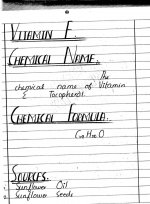 VITAMIN E.
CHEMICAL NAME.
The
chemical name of Vitamin
E Tocopherol.
CHEMICAL FORMULA.
SOURCES.
Sunflower Oil
Sunflower Seeds